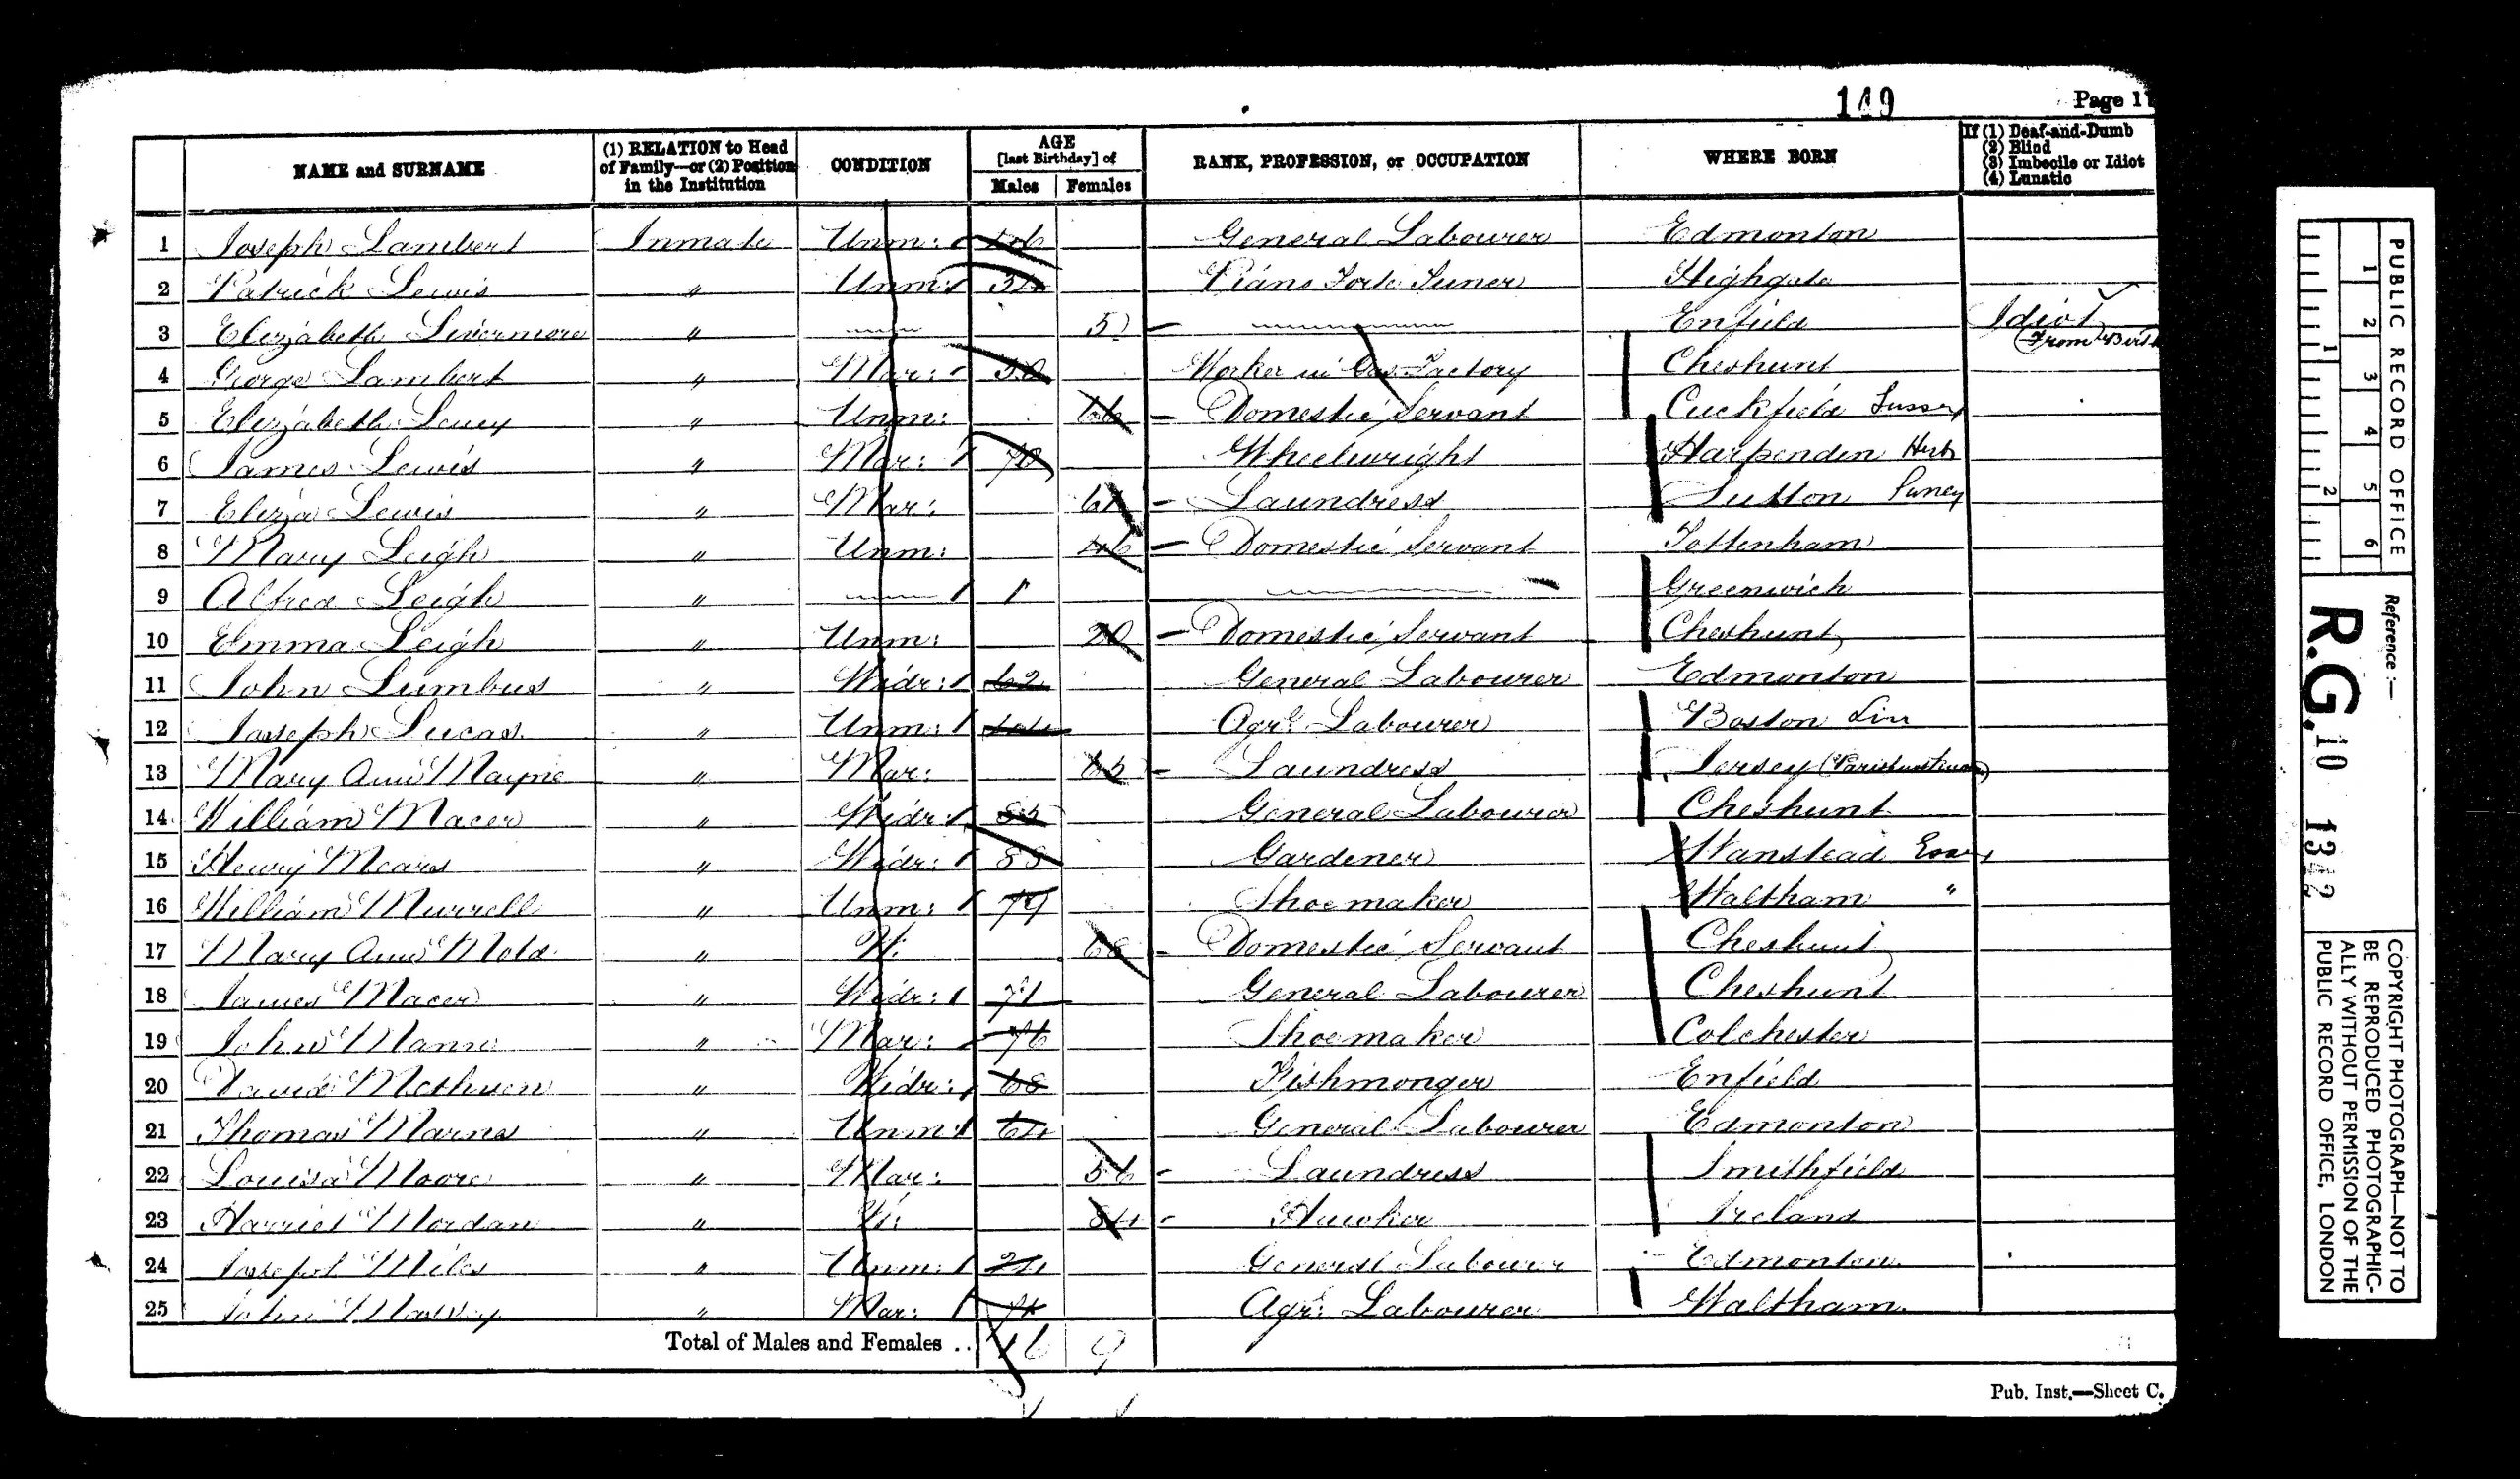 149
Page 11
NAME and SURNAME | (1) RELATION to Head of Family—or (2) Position in the Institution | CONDITION | AGE [last Birthday] of Males | Females | RANK, PROFESSION, or OCCUPATION | WHERE BORN | If (1) Deaf-and-Dumb (2) Blind (3) Imbecile or Idiot (4) Lunatic
1 Joseph Lambert Inmate Unm: General Labourer Edmonton
2 Patrick Lewis " Unm: Piano Forte Tuner Highgate
3 Elizabeth Livermore " 5 Enfield Idiot (From Birth
4 George Lambert " Mar: Worker in Gas Factory Cheshunt
5 Elizabeth " Unm: 66 Domestic Servant Cuckfield Sussex
6 James Lewis " Mar: Wheelwright Harpenden Herts
7 Eliza Lewis " Mar: 61 Laundress Sutton Surrey
8 Mary Leigh " Unm: 46 Domestic Servant Tottenham
9 Alfred Leigh " 1 Greenwich
10 Emma Leigh " Unm: 20 Domestic Servant Cheshunt
11 John Lumbus " Widr: 62 General Labourer Edmonton
12 Joseph Lucas " Unm: 44 Agrl. Labourer Boston Lin
13 Mary Ann Mayne " Mar: Laundress Jersey
14 William Macer " Widr: General Labourer Cheshunt
15 Henry Mears " Widr: 88 Gardener Wanstead Essex
16 William Murrell " Unm: 79 Shoemaker Waltham "
17 Mary Ann Mold " W. 68 Domestic Servant Cheshunt
18 James Macer " Widr: 71 General Labourer Cheshunt
19 John Mann " Mar: 76 Shoemaker Colchester
20 David Methven " Widr: 68 Fishmonger Enfield
21 Thomas Marns " Unm: 64 General Labourer Edmonton
22 Louisa Moore " Mar: 56 Laundress Smithfield
23 Harriet Mordan " W: 84 Hawker Ireland
24 Joseph Miles " Unm: 24 General Labourer Edmonton
25 John " Mar: Agrl: Labourer Waltham
Total of Males and Females .. 16 9
Pub. Inst.—Sheet C.
PUBLIC RECORD OFFICE
1 2 3 4 5 6
1 2
Reference :—
R.G. 10 1342
COPYRIGHT PHOTOGRAPH—NOT TO
BE REPRODUCED PHOTOGRAPHIC-
ALLY WITHOUT PERMISSION OF THE
PUBLIC RECORD OFFICE, LONDON